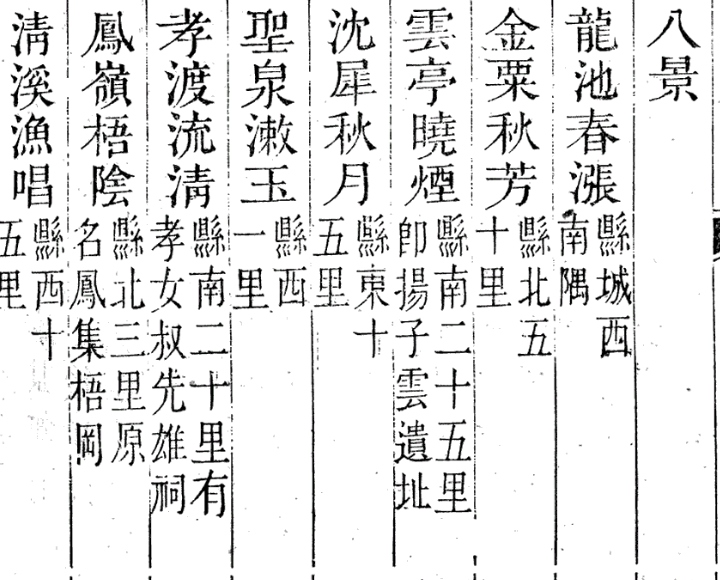 八景
龍池春漲縣城西南隅
金粟秋芳縣北五十里
雲亭曉煙縣南二十五里卽揚子雲遺址
沈犀秋月縣東十五里
聖泉漱玉縣西一里
孝渡流清縣南二十里有孝女叔先雄祠
鳳嶺梧陰縣北三里原名鳳集梧岡
清溪漁唱縣西十五里